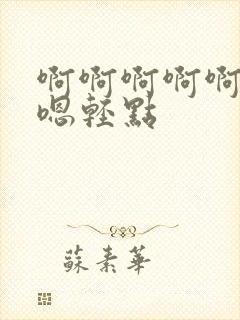 啊啊啊啊啊
嗯輕點
蘇素華